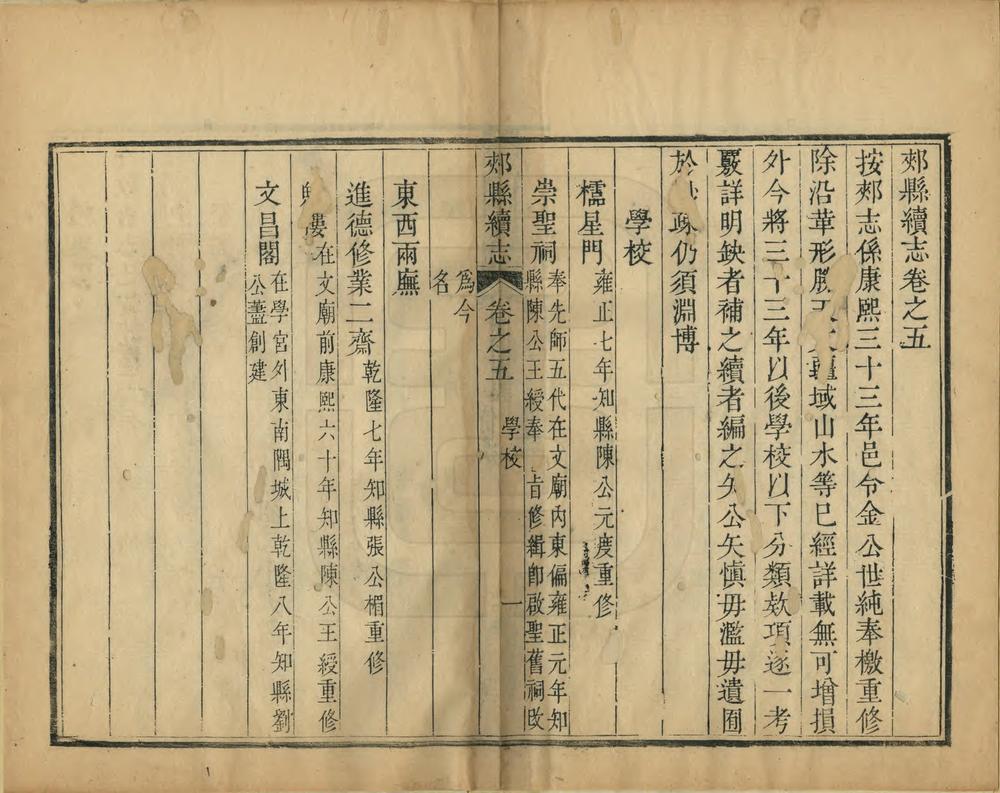 郟縣續志卷之五
按郟志係康熙三十三年邑令金公世純奉檄重修
除沿革形勝 疆域山水等已經詳載無可增損
外今將三十三年以後學校以下分類欵項逐一考
覈詳明缺者補之續者編之矢公矢慎毋濫毋遺囿
於 疎仍須淵博
學校
櫺星門 雍正七年知縣陳公元度重修
崇聖祠 奉先師五代在文廟內東偏雍正元年知
縣陳公王綬奉 旨修緝卽啟聖舊祠改
郟縣續志 卷之五 學校 一
爲今
名
東西兩廡
進德修業二齋 乾隆七年知縣張公楣重修
 在文廟前康熙六十年知縣陳公王綬重修
文昌閣 在學宮外東南隅城上乾隆八年知縣劉
公藎創建